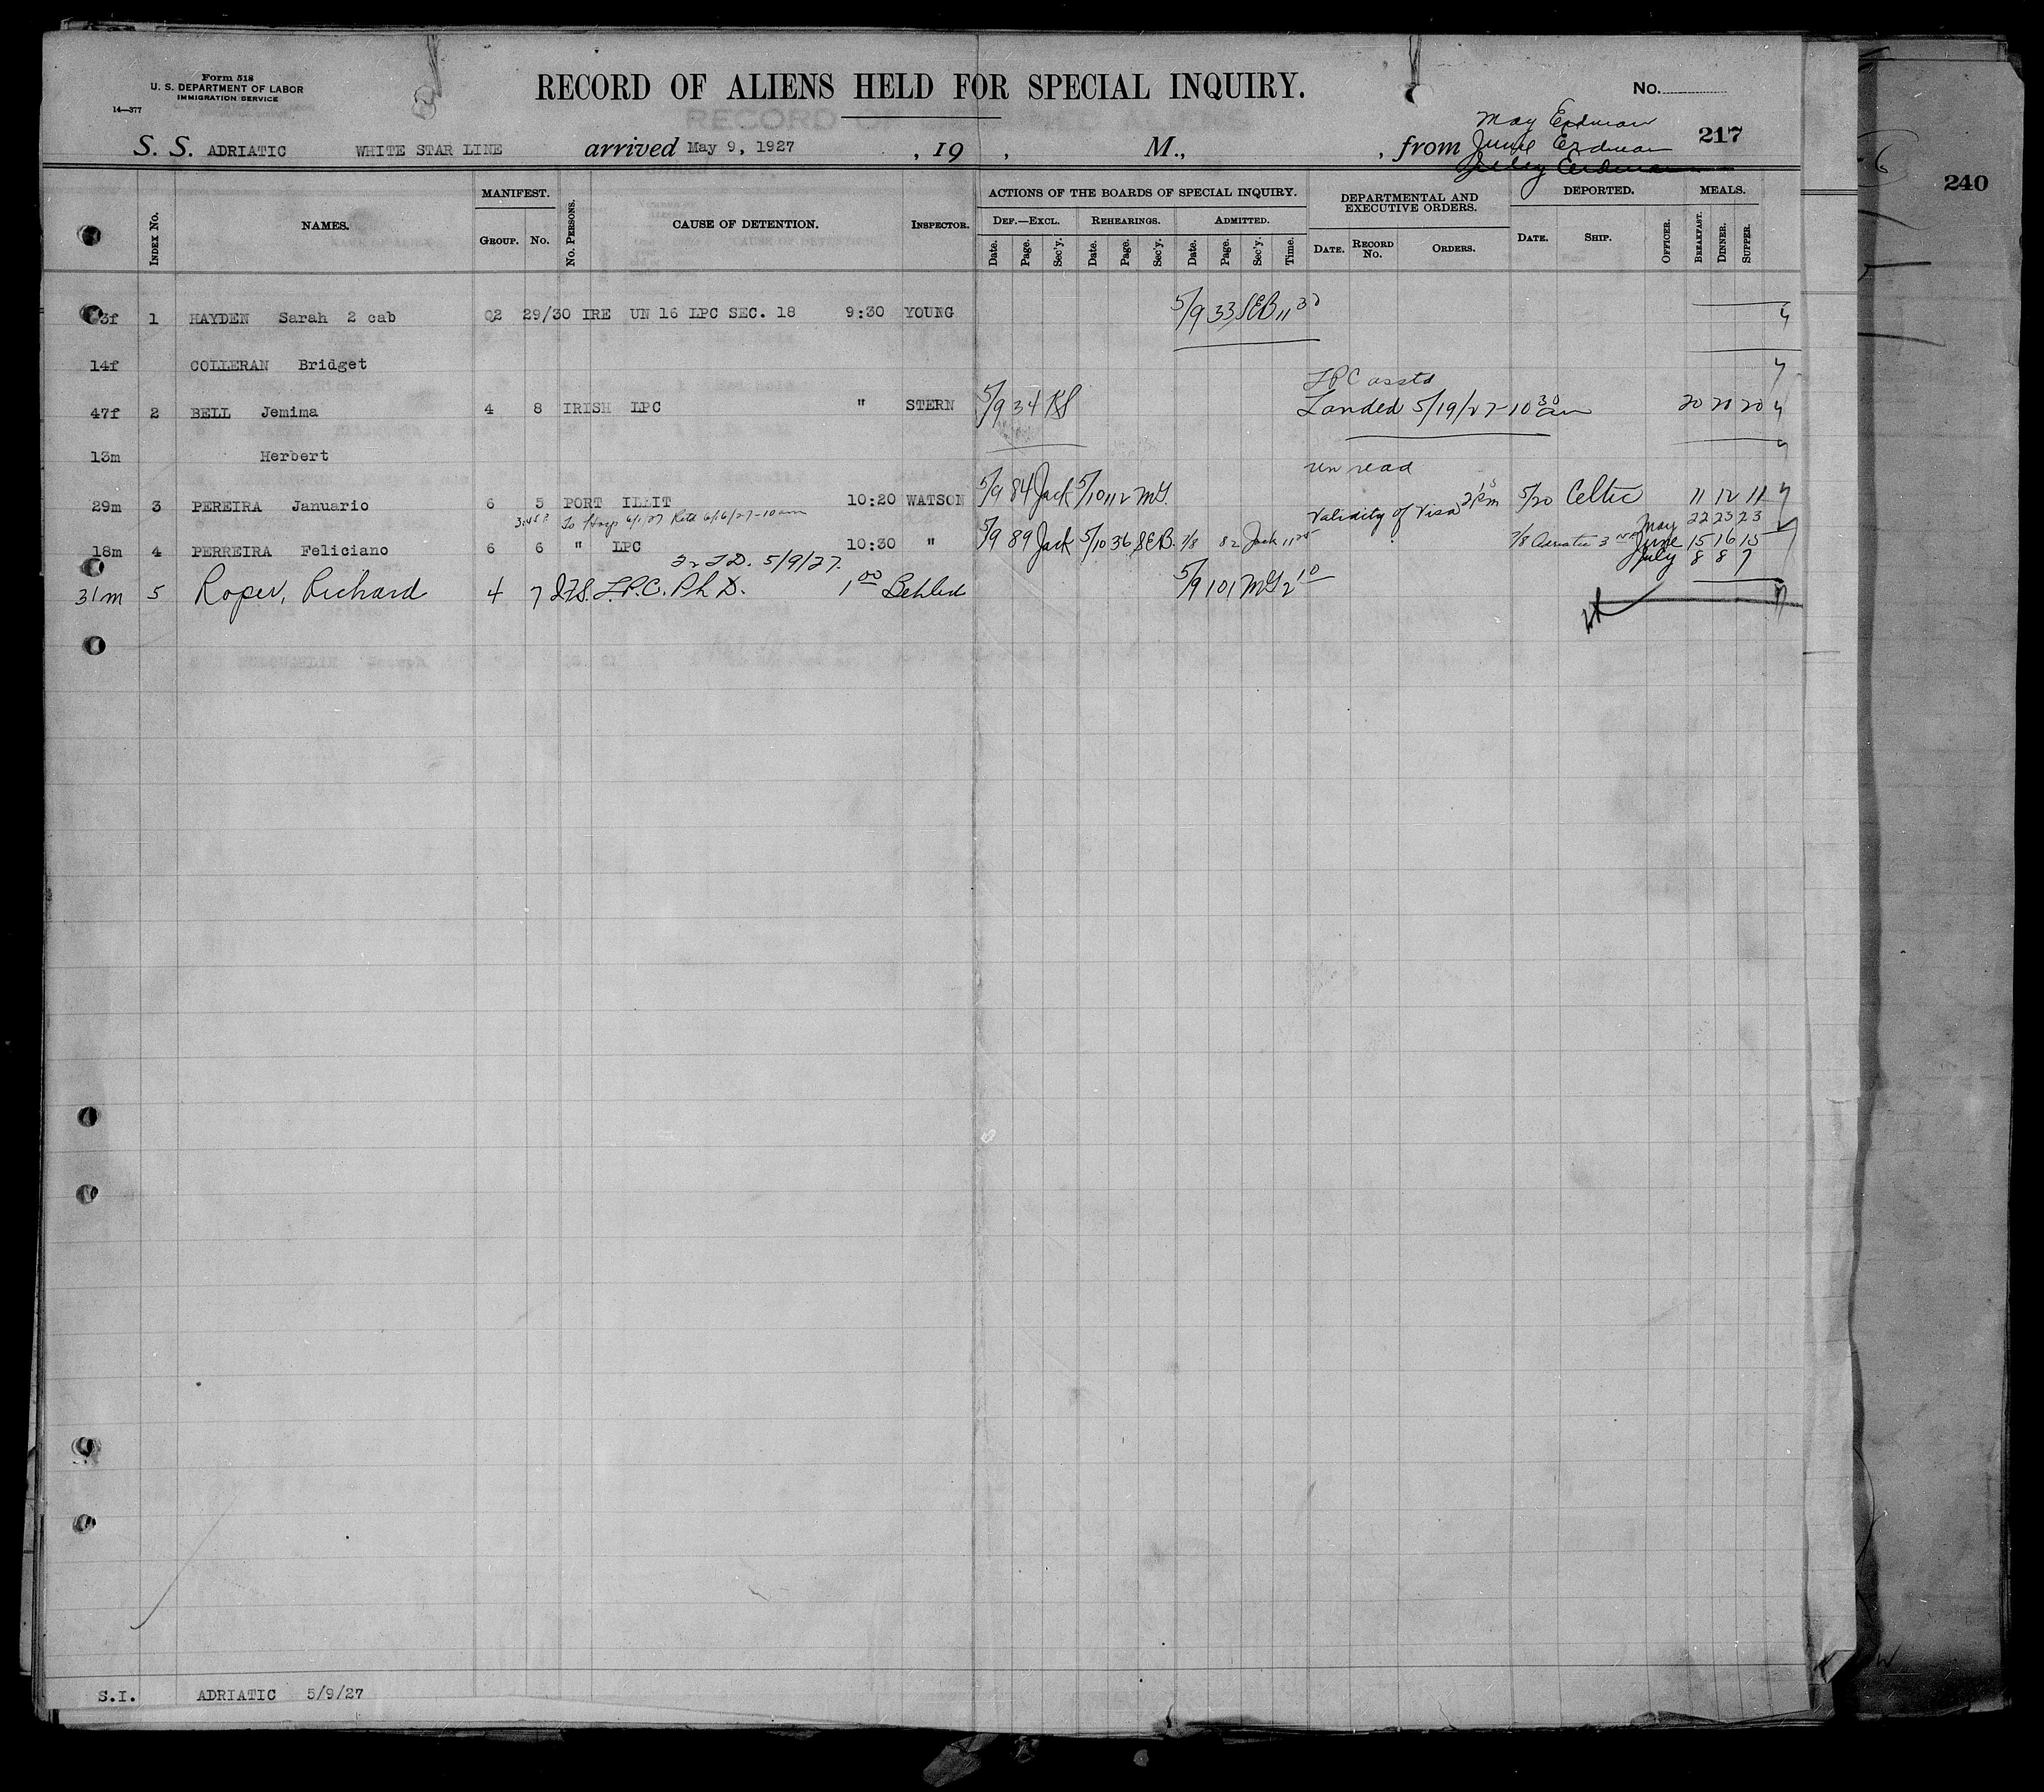 Form 518
U. S. DEPARTMENT OF LABOR
IMMIGRATION SERVICE
14—377
RECORD OF ALIENS HELD FOR SPECIAL INQUIRY.
No.
May Erdman
June Erdman
217
S. S. ADRIATIC WHITE STAR LINE arrived May 9, 1927 , 19 , M., , from
240
INDEX No. NAMES. MANIFEST. GROUP. No. No. PERSONS. CAUSE OF DETENTION. INSPECTOR.
ACTIONS OF THE BOARDS OF SPECIAL INQUIRY.
DEF.—EXCL. REHEARINGS. ADMITTED.
Date. Page. Sec'y. Date. Page. Sec'y. Date. Page. Sec'y. Time.
DEPARTMENTAL AND EXECUTIVE ORDERS.
DATE. RECORD No. ORDERS.
DEPORTED.
DATE. SHIP. OFFICER.
MEALS.
BREAKFAST. DINNER. SUPPER.
3f 1 HAYDEN Sarah 2 cab Q2 29/30 IRE UN 16 LPC SEC. 18 9:30 YOUNG 5/9 33 SEB 11 30
14f COLLERAN Bridget
LPC asstd
47f 2 BELL Jemima 4 8 IRISH LPC " STERN 5/9 34 KS Landed 5/19/27-10 30 am 20 20 20
13m Herbert
un read
29m 3 PEREIRA Januario 6 5 PORT ILLIT 10:20 WATSON 5/9 84 Jack 5/10 112 MG. 5/20 Celtic 11 12 11
To Hosp 6/1/27 Retd 6/16/27-10am
Validity of Visa
May 22 23 23
18m 4 PERREIRA Feliciano 6 6 " LPC 10:30 " 5/9 89 Jack 5/10 36 SEB. 7/8 82 Jack 7/8 June 15 16 15
July 8 8 7
5/9/27.
31m 5 Roper, Richard 4 7 L.P.C. Ph D. 1 00 5/9 101 MG 2 10
S.I. ADRIATIC 5/9/27